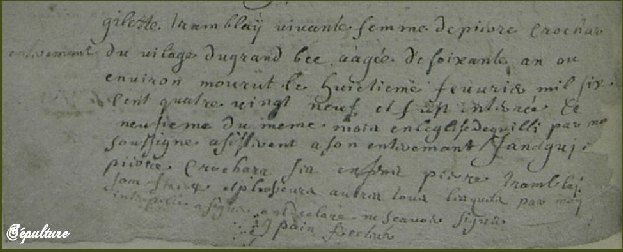 gilette tramblaÿ vivante femme de pierre crochar
entremant du vilage du grand bee aagée de soixante an ou
environ mourut le huictieme feuurier mil six
cent quatre vingt neuf et fut enterrée le
neufieme du meme mois en leglise de quilli par moy
soussigne asistent a son entremant
pierre crochara pierre tramblaÿ
son frere et plusieurs autres tous lesquels par moy
interpelle a signer ont declare ne scavoir signer
Sépulture